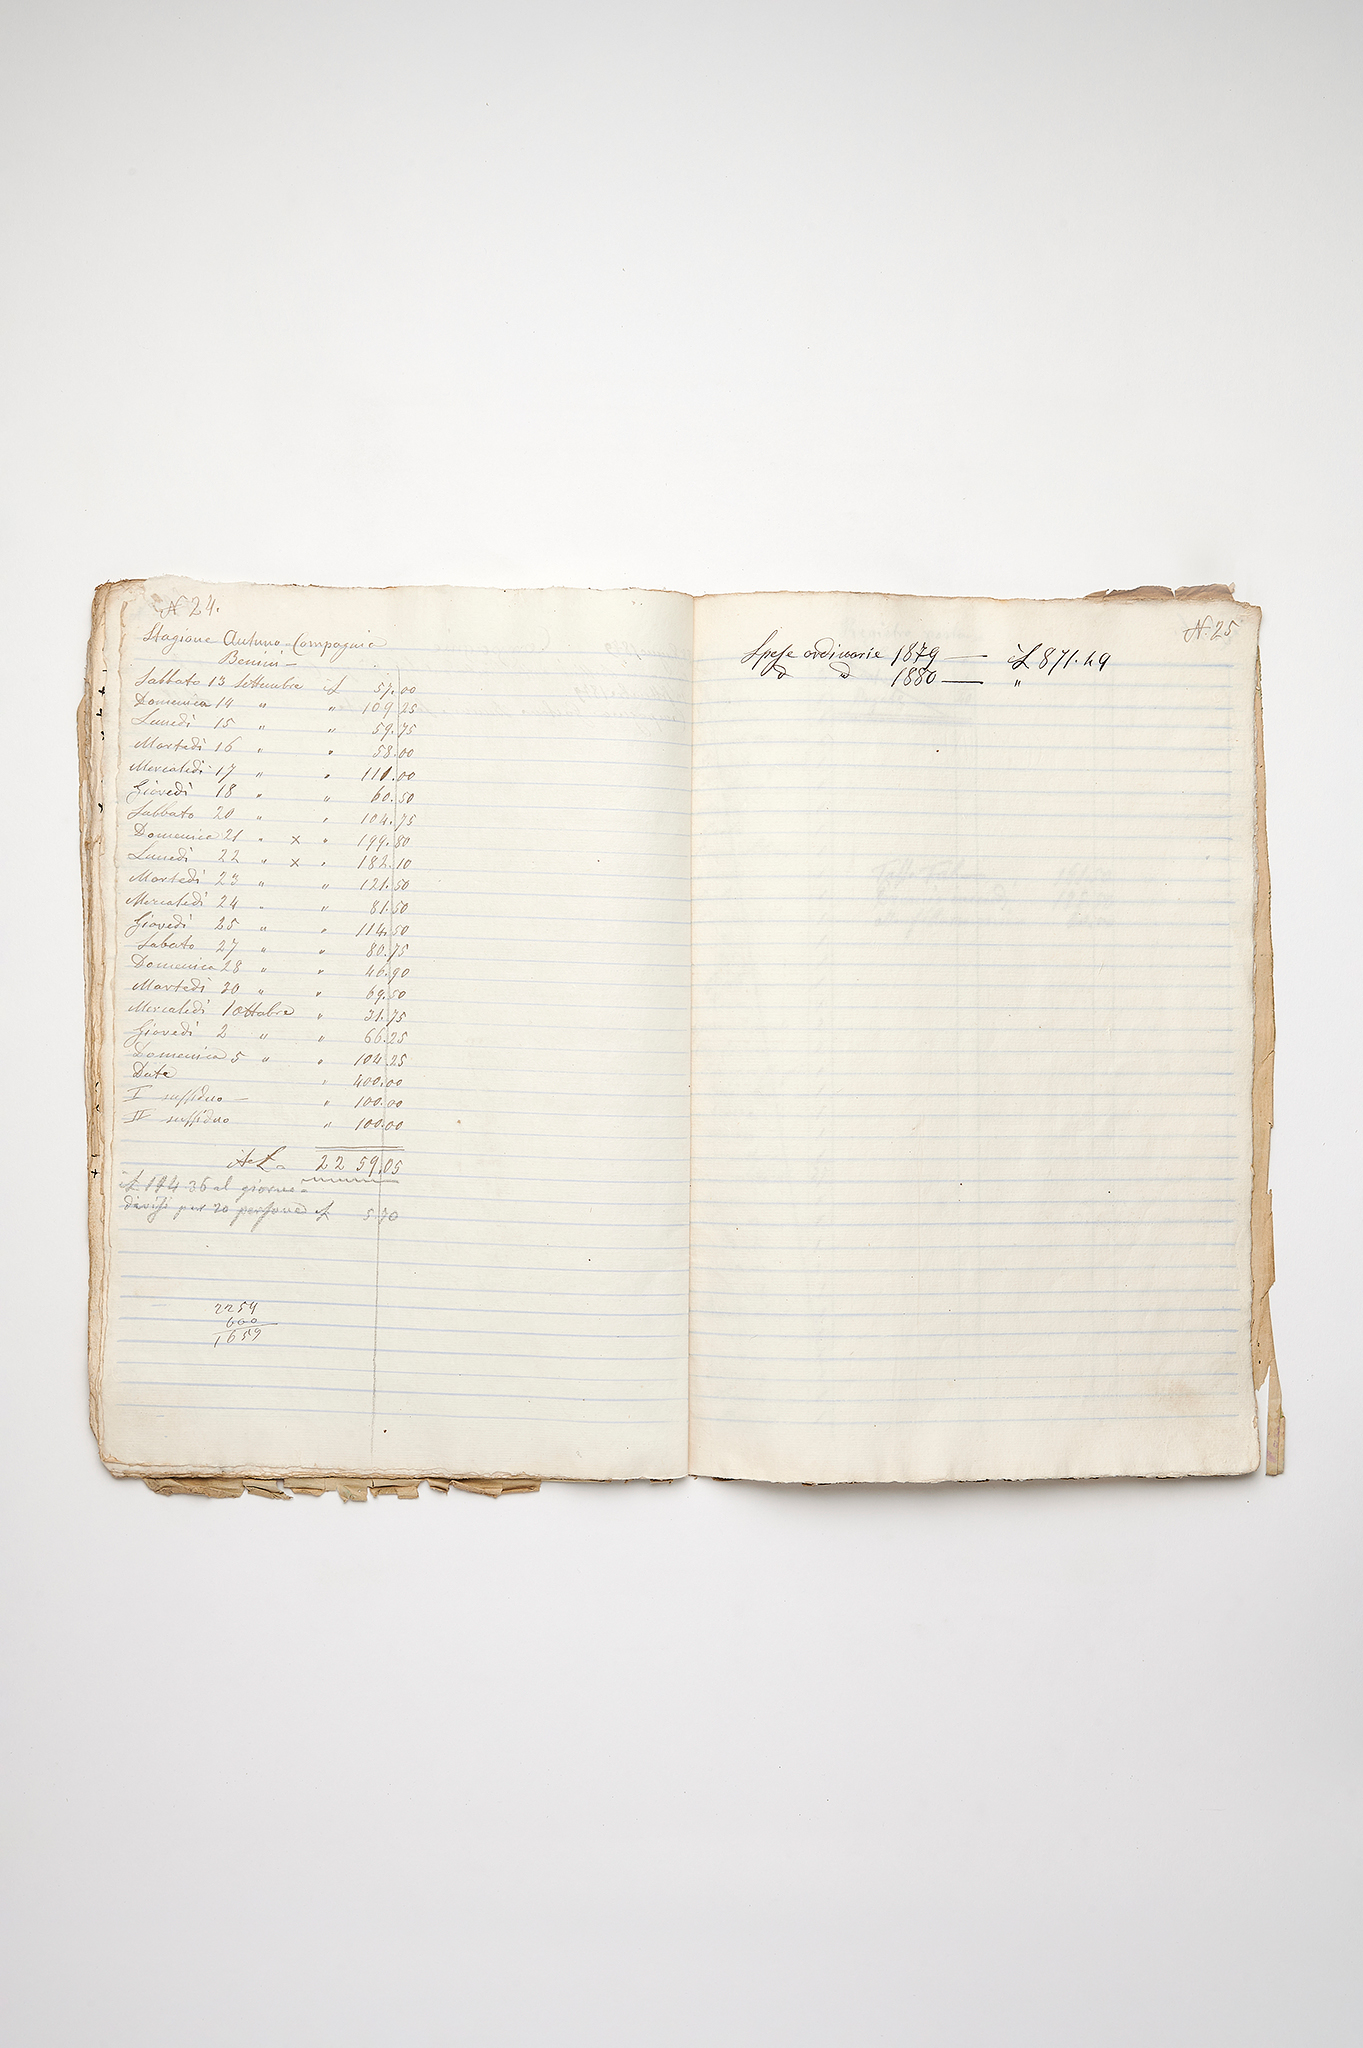 N 24.
Stagione Autuno Compagnia
Benini —
Sabbato 13 Settembre it£ 57.00
Domenica 14 " " 109.25
Lunedì 15 " " 59.75
Martedì 16 " " 58.00
Mercoledì 17 " " 110.00
Giovedì 18 " " 60.50
Sabbato 20 " 104.75
Domenica 21 " x " 199.80
Lunedì 22 " x " 182.10
Martedì 23 " " 121.50
Mercoledì 24 " " 81.50
Giovedì 25 " " 114.50
Sabato 27 " " 80.75
Domenica 28 " " 46.90
Martedì 30 " " 69.50
Mercoledì 1 Ottobre " 31.75
Giovedì 2 " " 66.25
Domenica 5 " " 104.25
Dote " 400.00
I suffiduo — " 100.00
II suffiduo " 100.00
it£. 2259.05
it£ 114.36 al giorno
divisi per 20 persone £ 5.70
2259
600
1659
N. 25
Spese ordinarie 1879 — it£ 871.49
d d 1880 — "